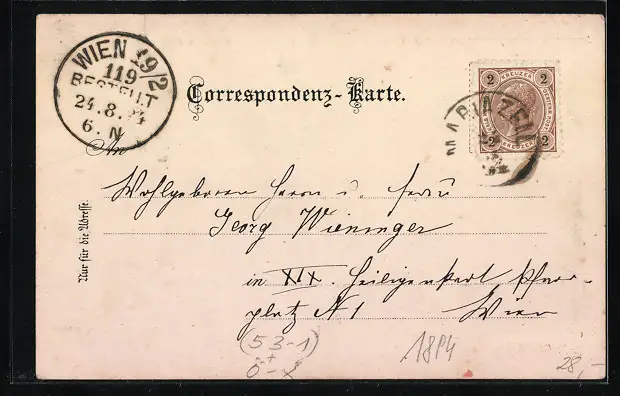 WIEN 19/2
119
BESTELLT
24.8.94
6.N
Correspondenz-Karte.
2 KREUZER 2
2 KREUZER 2
MARIAZELL
An
Wohlgeboren Herrn u. Frau
Georg Wieninger
in XIX. Heiligenstadt Pfarr-
platz N 1 Wien
Nur für die Adresse.
(53-1)
1894
28,-